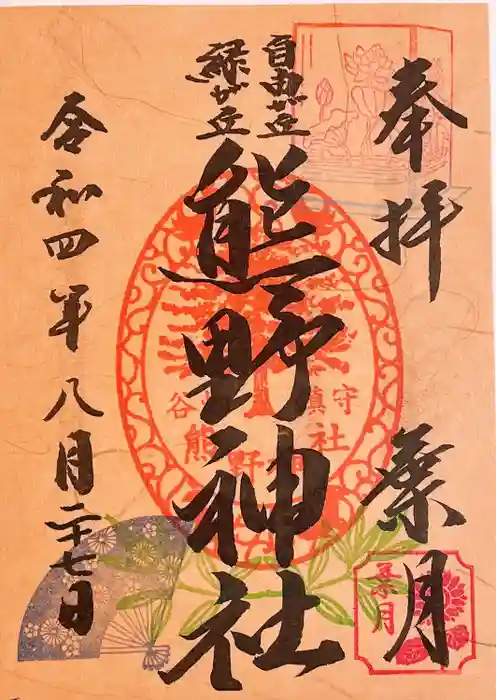 奉拝
葉月
自由が丘
緑が丘
熊野神社
令和四年八月二十七日
谷
鎮守
熊野神社
葉月